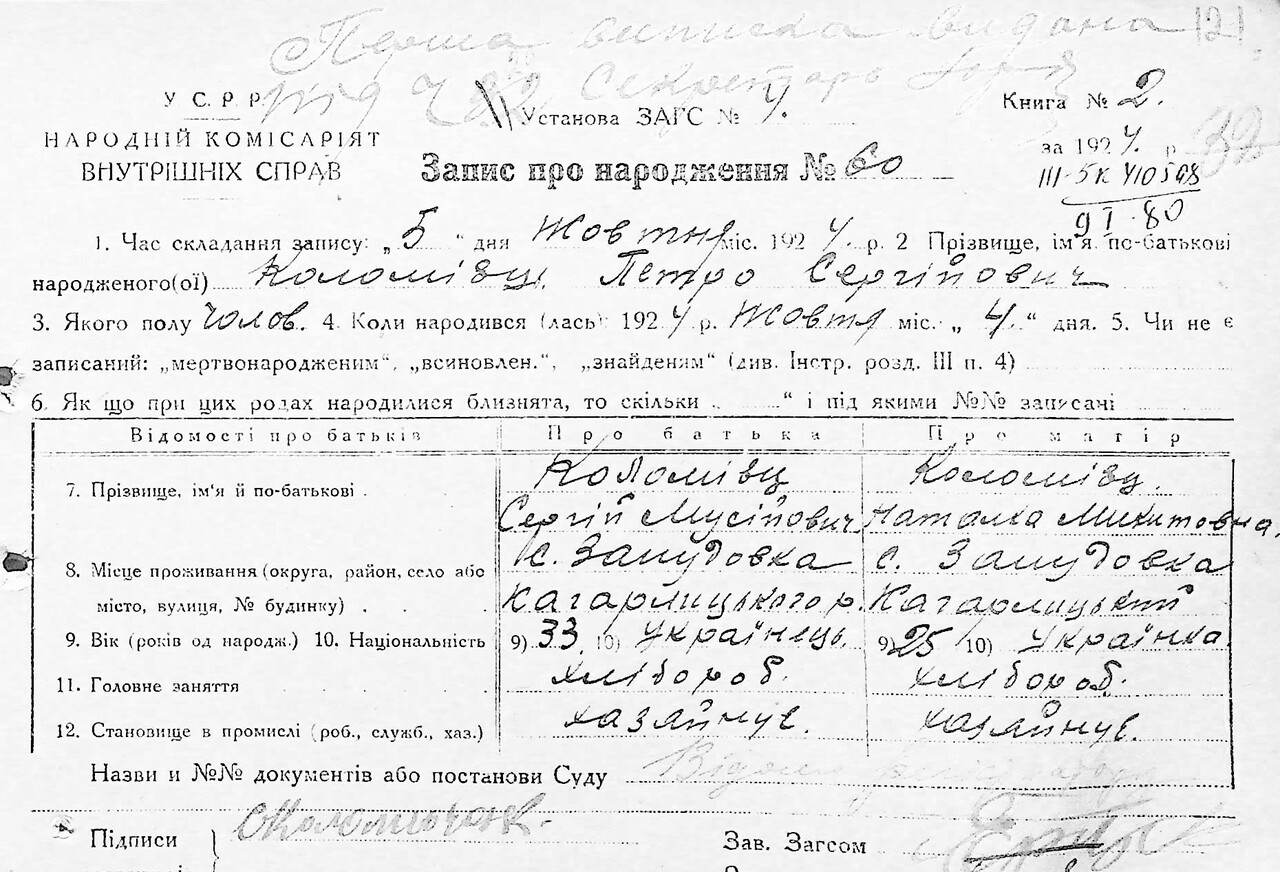 Перша виписка видана 121
під Секретарь
У С. Р. Р.
НАРОДНІЙ КОМІСАРІЯТ
ВНУТРІШНІХ СПРАВ
Установа ЗАГС № 4.
Книга № 2.
за 1924 р. 32
Запис про народження № 60
III-5К 410598
9 I 80
1. Час складання запису: „ 5 “ дня Жовтня міс. 1924 р. 2 Прізвище, ім'я, по-батькові
народженого(ої) Коломівц, Петро Сергійович
3. Якого полу Чолов. 4. Коли народився (лась): 1924 р. Жовтя міс. „ 4. “ дня. 5. Чи не є
записаний: „мертвонародженим“, „всиновлен.“, „знайденям“ (див. Інстр. розд. III п. 4)
6. Як що при цих родах народилися близнята, то скільки „ “ і під якими №№ записачі
Відомості про батьків Про батька Про матір
7. Прізвище, ім'я й по-батькові . Коломівц Коломівц.
Сергій Мусійович Наталка Микитовна,
8. Місце проживання (округа, район, село або с. Запудовка с. Запудовка
місто, вулиця, № будинку) . . Кагарлицького р. Кагарлицький
9. Вік (років од народж.) 10. Національність 9) 33 10) Українець. 9) 25 10) Українка.
11. Головне заняття хлібороб. хлібороб.
12. Становище в промислі (роб., служб., хаз.) хазайнув. хазайнув.
Назви и №№ документів або постанови Суду
Підписи
Зав. Загсом